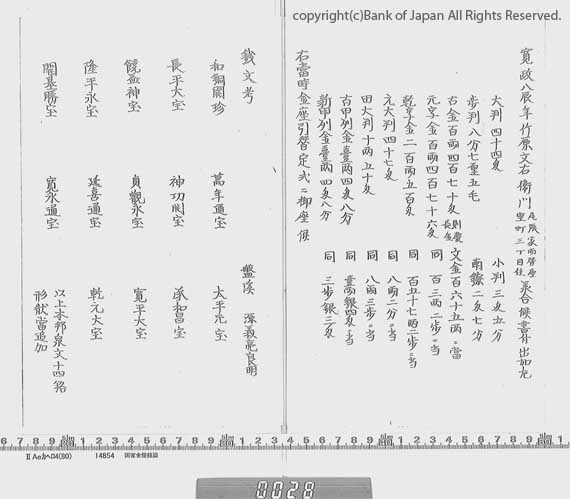 copyright(c)Bank of Japan All Rights Reserved.
寛政八辰年竹原文右衛門
里町三丁目住
大判 四十四匁
小判 三匁五分
歩判 八分七重五毛
南鐐 二匁七分
古金百両四百七十匁
文金百六十五両ニ当
元字金百両四百七十六匁
同 百三両二歩ニ当
乾字金二百両五百匁
同 百五十七両二歩ニ当
元大判 四十七匁
同 八両二分ニ当
田大判 十両五十匁
同 八両三歩ニ当
古甲州金壹両四匁八分
同 壹両銀四匁ニ当
新甲州金壹両四匁八分
同 三歩銀三匁
右當時金座引替定式ニ御座候
錢文考
盤溪
源義亮良明
和銅開珍
萬年通宝
太平元宝
長平大宝
神功開宝
承和昌宝
饒益神宝
貞觀永宝
寛平大宝
隆平永宝
延喜通宝
乾元大宝
開基勝宝
寛永通宝
以上本邦泉文十四銘
形状當追加
6 7 8 9 1 2 3 4 5 6 7 8 9 1 2 3
4 5 6 7 8 9 1 2 3 4 5 6 7 8 9 1
ⅡAeあへD4(80)
14854
0028